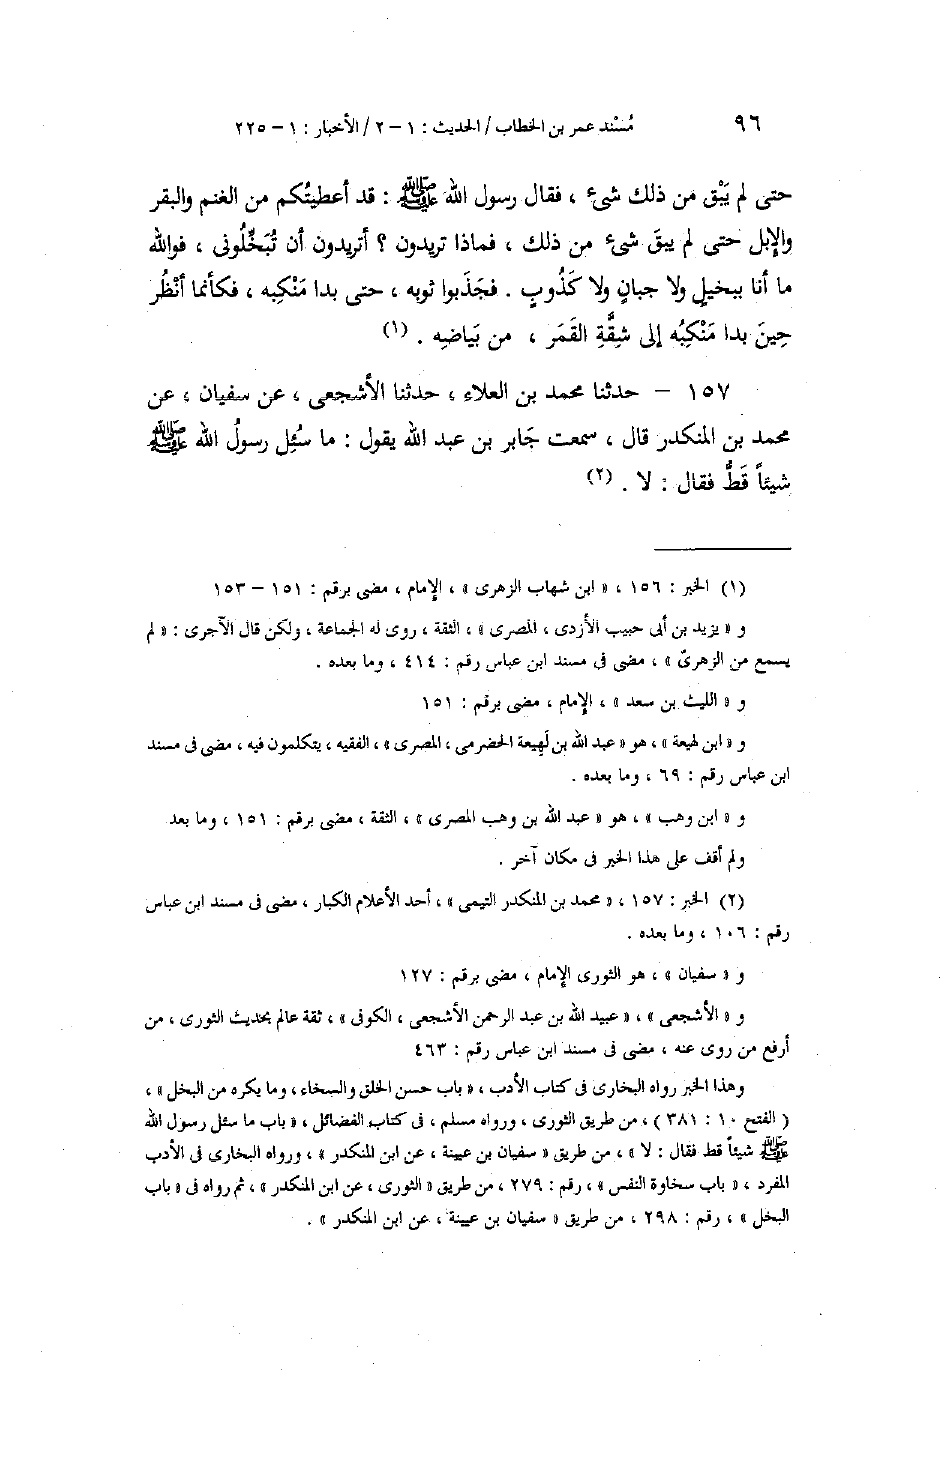 ٩٦
مُسْند عمر بن الخطاب / الحديث : ١ – ٢ / الأخبار : ١ – ٢٢٥
حتى لم يَبْق من ذلك شىء ، فقال رسول الله ﷺ : قد أعطيتُكم من الغنم والبقر
والإبل حتى لم يبقَ شىء من ذلك ، فماذا تريدون ؟ أتريدون أن تُبَخِّلُونى ، فوالله
ما أنا ببخيلٍ ولا جبانٍ ولا كَذُوبٍ . فجَذَبوا ثوبه ، حتى بدا مَنْكِبه ، فكأنما أنْظُر
حِينَ بدا مَنْكِبُه إلى شِقَّةِ القَمَر ، من بَياضِه . (١)
١٥٧ – حدثنا محمد بن العلاء ، حدثنا الأشجعى ، عن سفيان ، عن
محمد بن المنكدر قال ، سمعت جَابر بن عبد الله يقول : ما سُئِل رسولُ الله ﷺ
شيئاً قَطُّ فقال : لا . (٢)
(١) الخبر : ١٥٦ ، « ابن شهاب الزهرى » ، الإمام ، مضى برقم : ١٥١ – ١٥٣
و « يزيد بن أبى حبيب الأزدى ، المصرى » ، الثقة ، روى له الجماعة ، ولكن قال الآجرى : « لم
يسمع من الزهرىّ » ، مضى فى مسند ابن عباس رقم : ٤١٤ ، وما بعده .
و « الليث بن سعد » ، الإمام ، مضى برقم : ١٥١
و « ابن لهيعة » ، هو « عبد الله بن لَهِيعة الحضرمى ، المصرى » ، الفقيه ، يتكلمون فيه ، مضى فى مسند
ابن عباس رقم : ٦٩ ، وما بعده .
و « ابن وهب » ، هو « عبد الله بن وهب المصرى » ، الثقة ، مضى برقم : ١٥١ ، وما بعد
ولم أقف على هذا الخبر فى مكان آخر .
(٢) الخبر : ١٥٧ ، « محمد بن المنكدر التيمى » ، أحد الأعلام الكبار ، مضى فى مسند ابن عباس
رقم : ١٠٦ ، وما بعده .
و « سفيان » ، هو الثورى الإمام ، مضى برقم : ١٢٧
و « الأشجعى » ، « عبيد الله بن عبد الرحمن الأشجعى ، الكوفى » ، ثقة عالم بحديث الثورى ، من
أرفع من روى عنه ، مضى فى مسند ابن عباس رقم : ٤٦٣
وهذا الخبر رواه البخارى فى كتاب الأدب ، « باب حسن الخلق والسخاء ، وما يكره من البخل » ،
( الفتح ١٠ : ٣٨١ ) ، من طريق الثورى ، ورواه مسلم ، فى كتاب الفضائل ، « باب ما سئل رسول الله
ﷺ شيئاً قط فقال : لا » ، من طريق « سفيان بن عيينة ، عن ابن المنكدر » ، ورواه البخارى فى الأدب
المفرد ، « باب سخاوة النفس » ، رقم : ٢٧٩ ، من طريق « الثورى ، عن ابن المنكدر » ، ثم رواه فى « باب
البخل » ، رقم : ٢٩٨ ، من طريق « سفيان بن عيينة ، عن ابن المنكدر » .